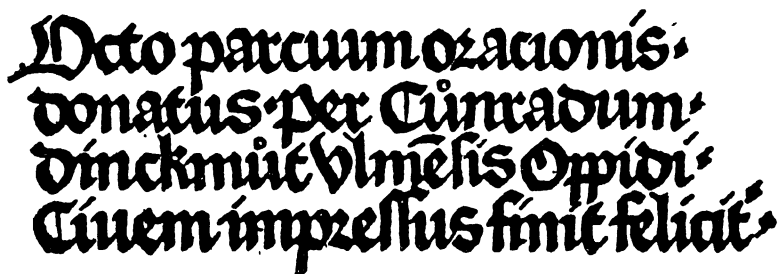 Octo parcium oracionis·
donatus·Per Cůnradum·
dinckmůt Vlmēſis Oppidi·
Ciuem impreſſus finit felicit̛·